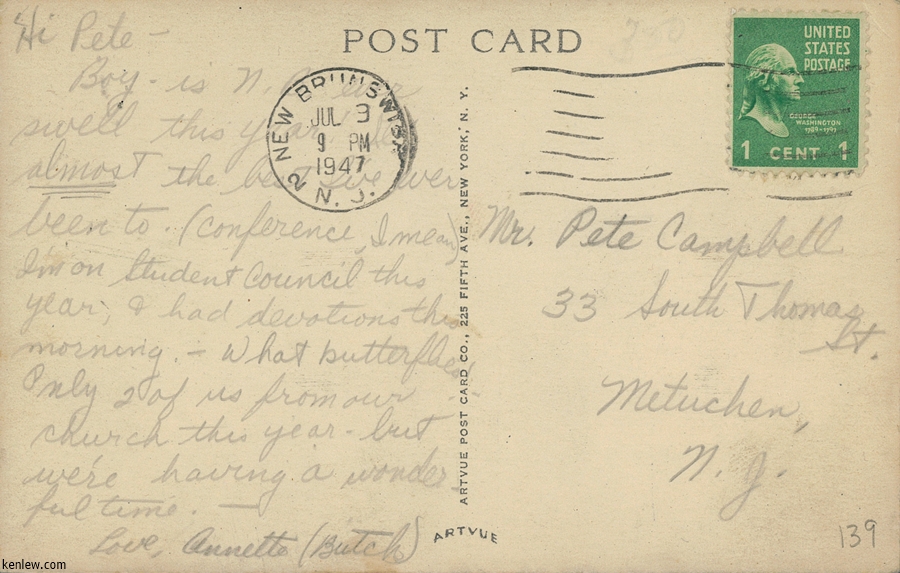 POST CARD
UNITED
STATES
POSTAGE
GEORGE
WASHINGTON
1789-1797
1 CENT 1
NEW BRUNSWICK
JUL 3
9 PM
1947
2 N. J.
Hi Pete -
Boy - is N.
swell this year
almost the best I've ever
been to. (conference, I mean)
I'm on Student Council this
year, & had devotions this
morning. - What butterflies
Only 2 of us from our
church this year - but
we're having a wonder-
ful time. -
Love, Annette (Butch)
Mr. Pete Campbell
33 South Thomas
St.
Metuchen,
N. J.
ARTVUE POST CARD CO., 225 FIFTH AVE., NEW YORK, N. Y.
ARTVUE
139
kenlew.com